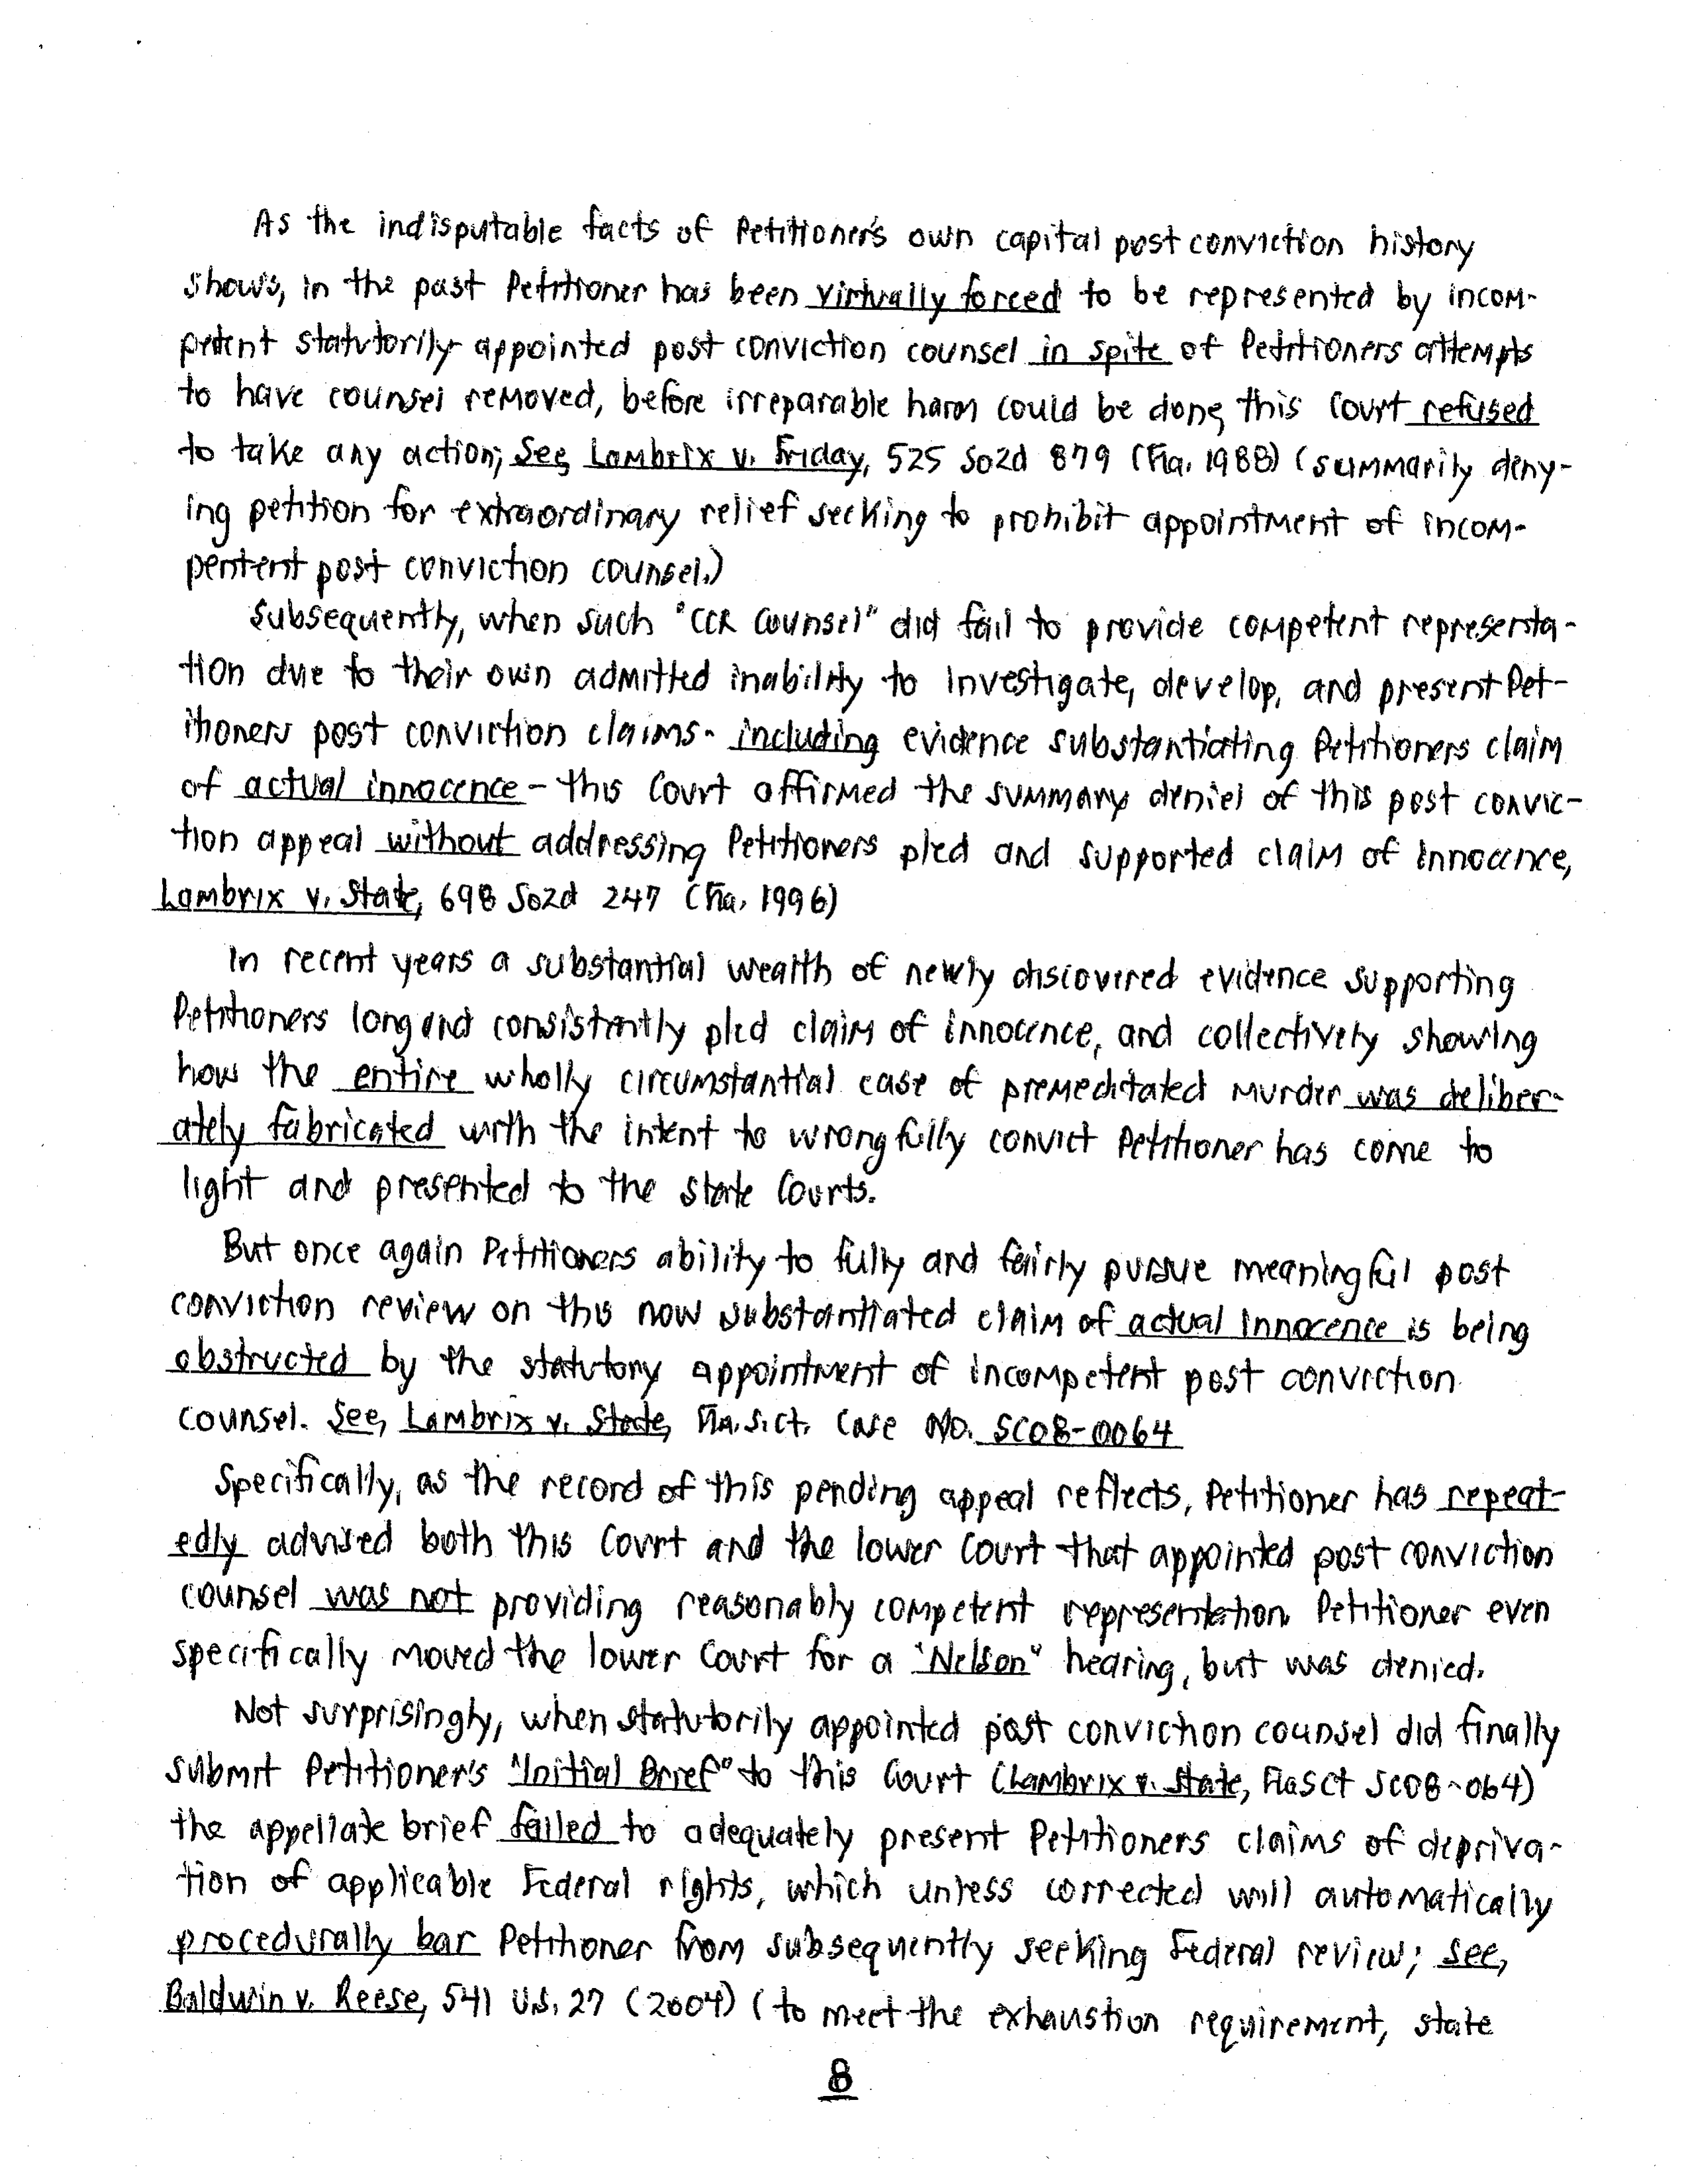 As the indisputable facts of Petitioner's own capital post conviction history
shows, in the past Petitioner has been virtually forced to be represented by incom-
petent statutorily appointed post conviction counsel in spite of Petitioners attempts
to have counsel removed, before irreparable harm could be done, this Court refused
to take any action; See, Lambrix v. Friday, 525 So2d 879 (Fla. 1988) (summarily deny-
ing petition for extraordinary relief seeking to prohibit appointment of incom-
pentent post conviction counsel.)
Subsequently, when such "CCR Counsel" did fail to provide competent representa-
tion due to their own admitted inability to investigate, develop, and present Pet-
itioners post conviction claims - including evidence substantiating Petitioners claim
of actual innocence - this Court affirmed the summary deniel of this post convic-
tion appeal without addressing Petitioners pled and supported claim of innocence,
Lambrix v. State, 698 So2d 247 (Fla. 1996)
In recent years a substantial wealth of newly discovered evidence supporting
Petitioners long and consistently pled claim of innocence, and collectively showing
how the entire wholly circumstantial case of premeditated murder was deliber-
ately fabricated with the intent to wrongfully convict Petitioner has come to
light and presented to the State Courts.
But once again Petitioners ability to fully and fairly pursue meaningful post
conviction review on this now substantiated claim of actual innocence is being
obstructed by the statutory appointment of incompetent post conviction
counsel. See, Lambrix v. State, Fla.S.Ct. Case No. SC08-0064
Specifically, as the record of this pending appeal reflects, Petitioner has repeat-
edly advised both this Court and the lower Court that appointed post conviction
counsel was not providing reasonably competent representation. Petitioner even
specifically moved the lower Court for a "Nelson" hearing, but was denied.
Not surprisingly, when statutorily appointed post conviction counsel did finally
submit Petitioner's "Initial Brief" to this Court (Lambrix v. State, FlaSCt SC08-064)
the appellate brief failed to adequately present Petitioners claims of depriva-
tion of applicable Federal rights, which unless corrected will automatically
procedurally bar Petitioner from subsequently seeking Federal review; see,
Baldwin v. Reese, 541 U.S. 27 (2004) (to meet the exhaustion requirement, state
8